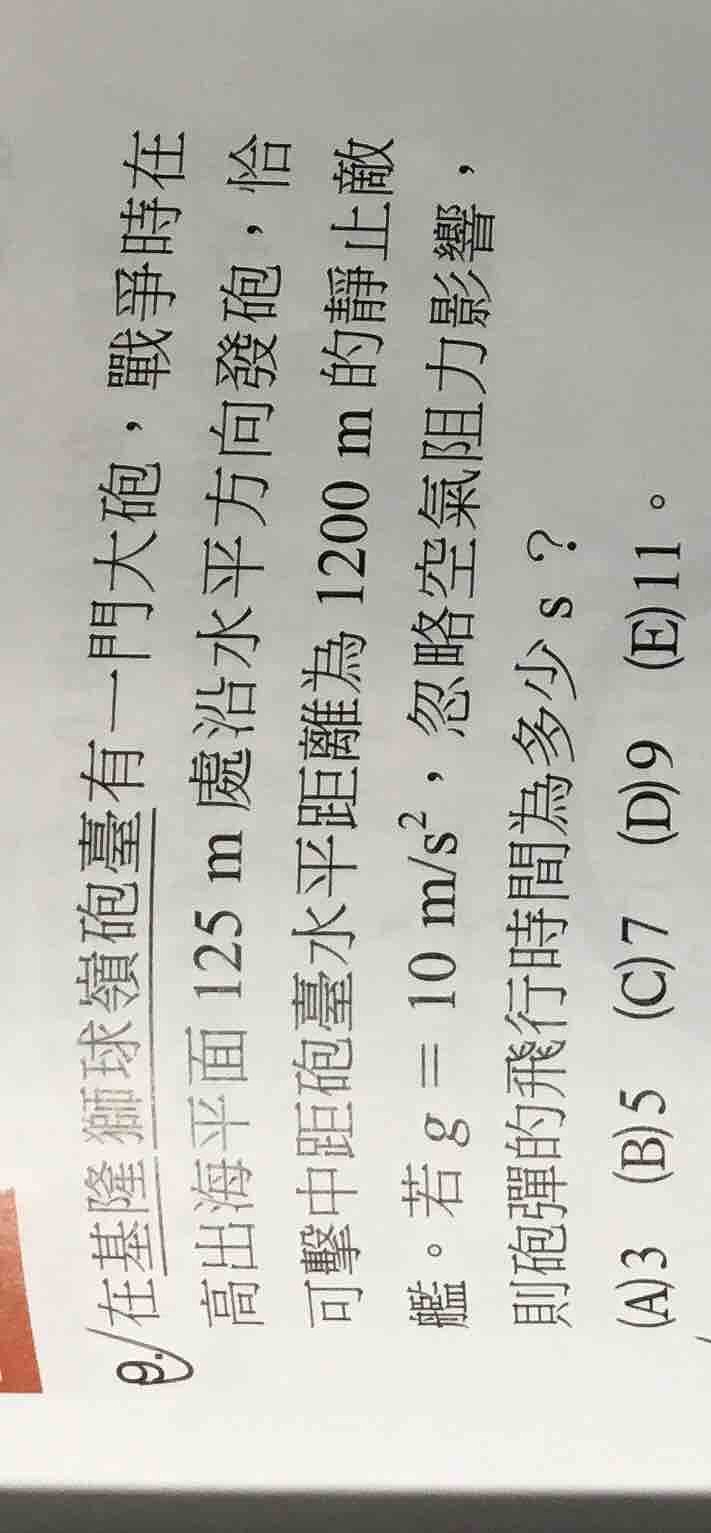 9. 在基隆獅球嶺砲臺有一門大砲，戰爭時在
高出海平面 125 m 處沿水平方向發砲，恰
可擊中距砲臺水平距離為 1200 m 的靜止敵
艦。若 g = 10 m/s²，忽略空氣阻力影響，
則砲彈的飛行時間為多少 s？
(A)3 (B)5 (C)7 (D)9 (E)11。